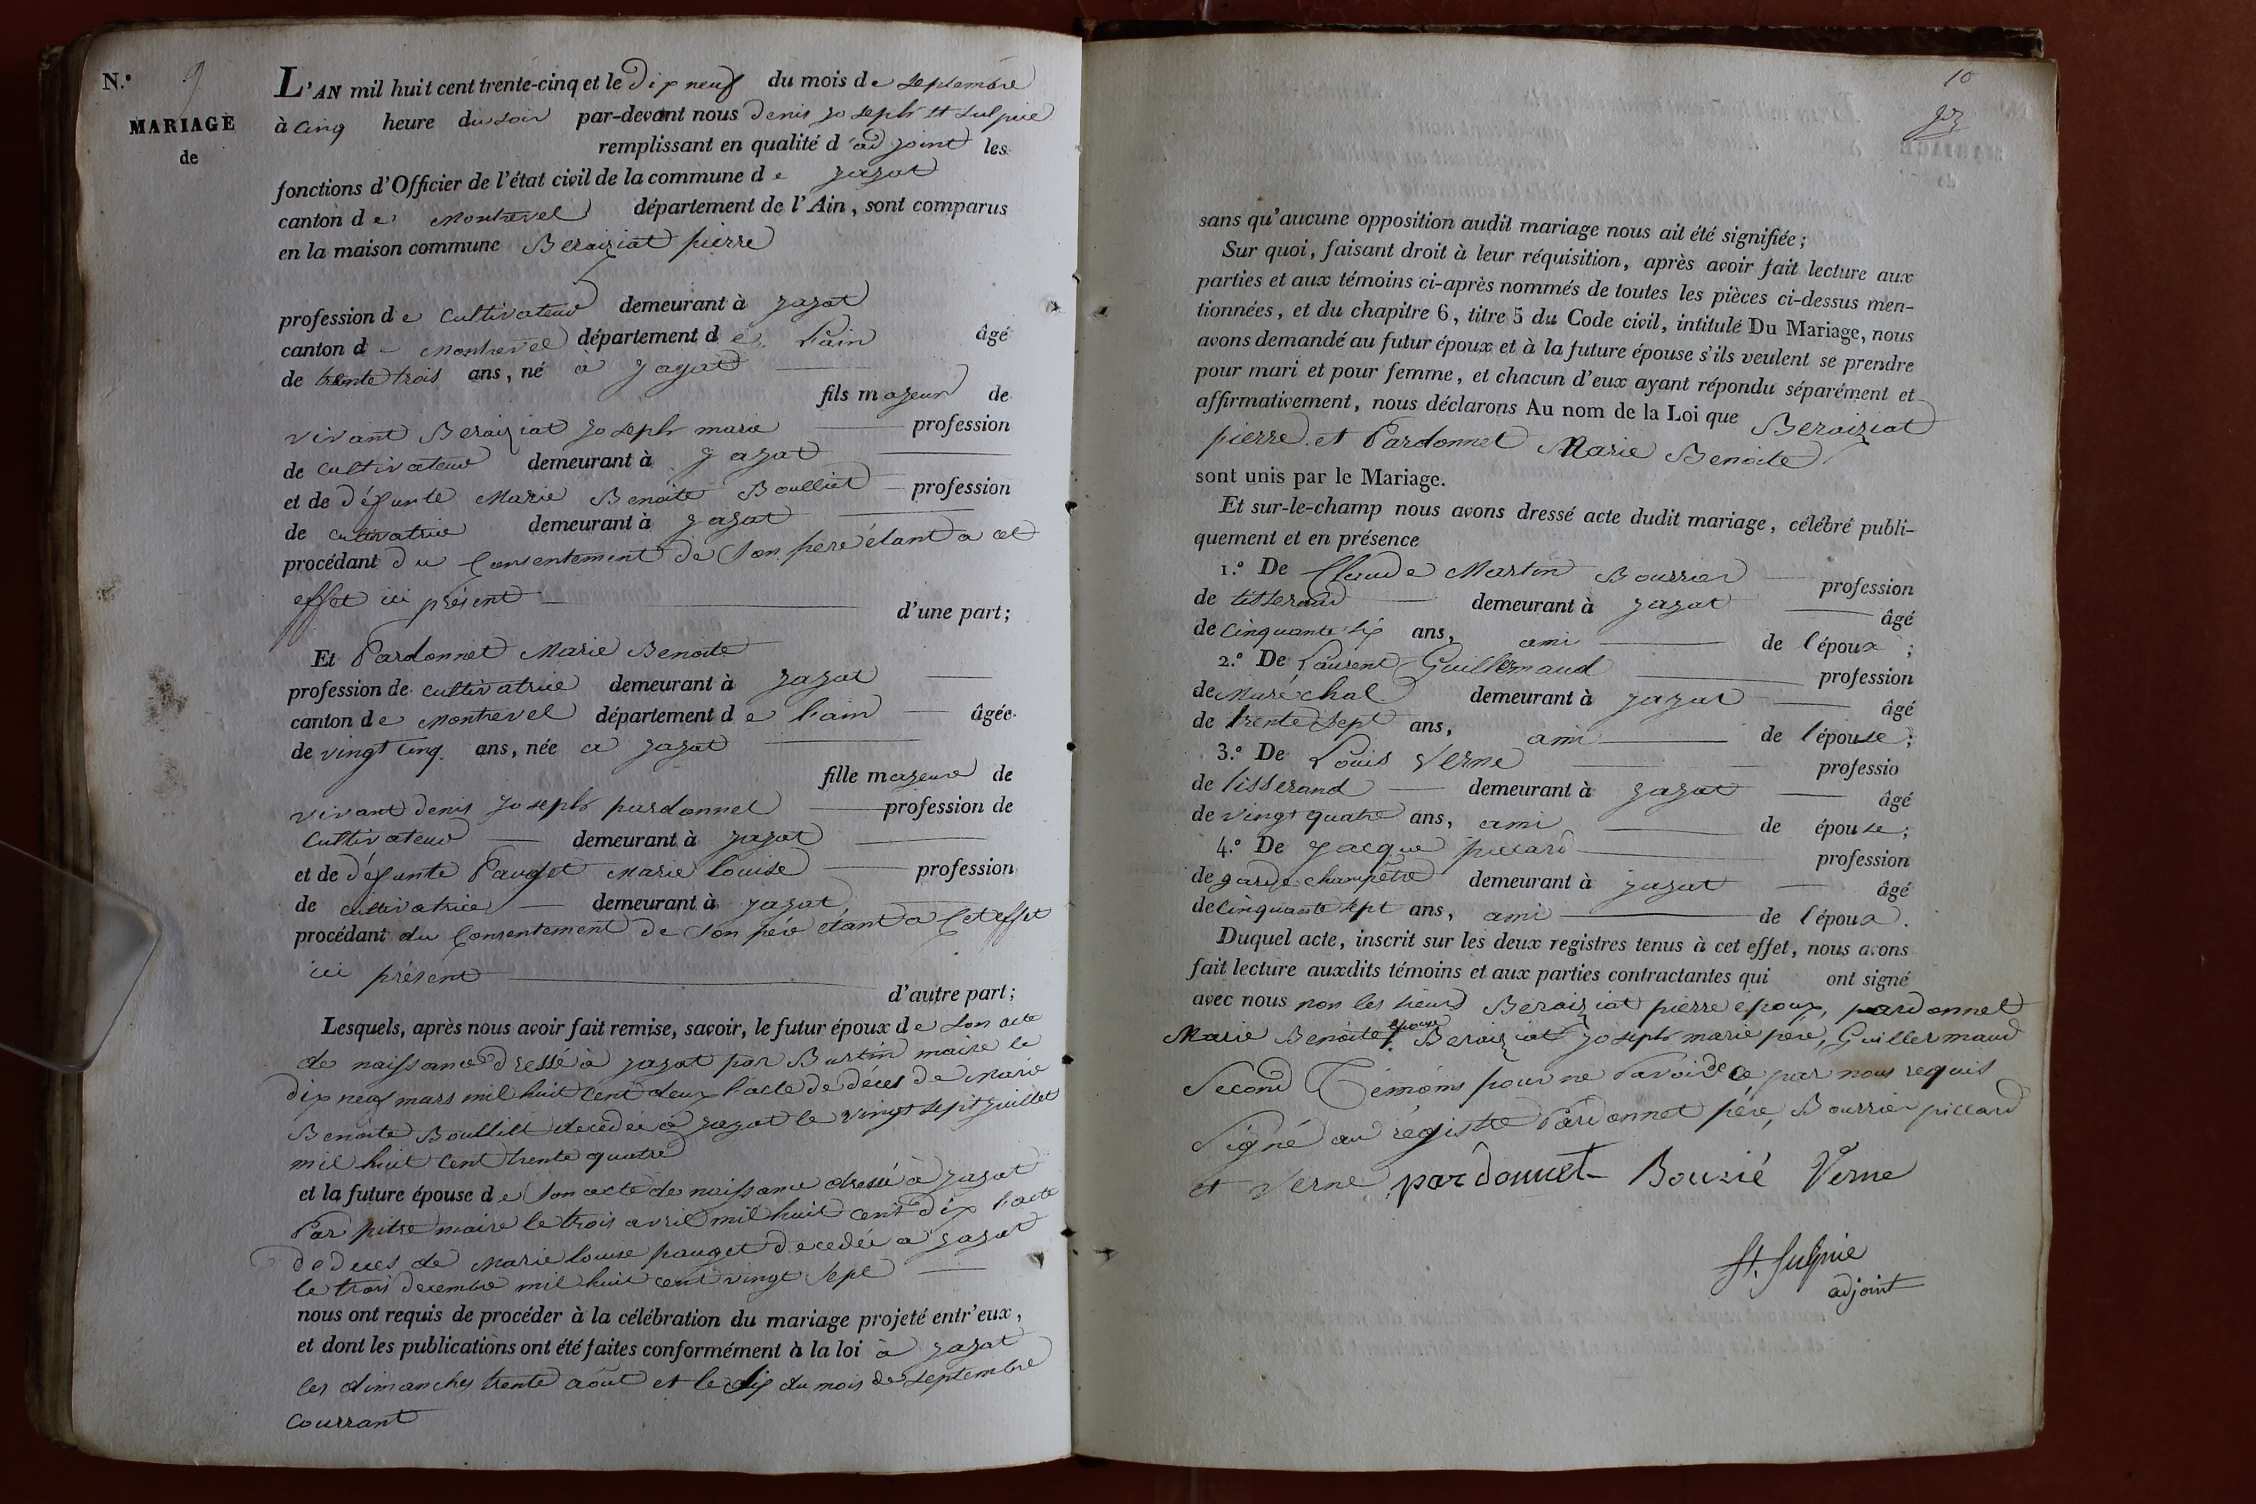 N.º 9
MARIAGE
de
L'AN mil huit cent trente-cinq et le dix neuf du mois de septembre
à cinq heure du soir par-devant nous denis joseph St sulpice
remplissant en qualité d'adjoint les
fonctions d'Officier de l'état civil de la commune de jayat
canton de Montrevel département de l'Ain, sont comparus
en la maison commune Beraiziat pierre
profession de cultivateur demeurant à jayat
canton de Montrevel département de l'ain âgé
de trente trois ans, né à jayat
fils majeur de
vivant Beraiziat joseph marie profession
de cultivateur demeurant à jayat
et de défunte Marie Benoite Boulliet profession
de cultivatrice demeurant à jayat
procédant du Consentement de son pere étant a cet
effet ici présent d'une part;
Et Pardonnet Marie Benoite
profession de cultivatrice demeurant à jayat
canton de Montrevel département de l'ain âgée
de vingt cinq ans, née a jayat
fille majeure de
vivant denis joseph pardonnet profession de
Cultivateur demeurant à jayat
et de défunte Pauget Marie louise profession
de cultivatrice demeurant à jayat
procédant du Consentement de son pére étant a Cet effet
ici présent
d'autre part;
Lesquels, après nous avoir fait remise, savoir, le futur époux de son acte
de naissance dressé à jayat par Burtin maire le
dix neuf mars mil huit cent deux l'acte de déces de Marie
Benoite Boulliet decedée à jayat le vingt sept juillet
mil huit cent trente quatre
et la future épouse de son acte de naissance dressé à jayat
Par pitre maire le trois avril mil huit cent dix l'acte
de deces de Marie louise pauget decedée a jayat
le trois decembre mil huit cent vingt sept
nous ont requis de procéder à la célébration du mariage projeté entr'eux,
et dont les publications ont été faites conformément à la loi à jayat
les dimanches trente août et le six du mois de septembre
courrant
10
sans qu'aucune opposition audit mariage nous ait été signifiée;
Sur quoi, faisant droit à leur réquisition, après avoir fait lecture aux
parties et aux témoins ci-après nommés de toutes les pièces ci-dessus men-
tionnées, et du chapitre 6, titre 5 du Code civil, intitulé Du Mariage, nous
avons demandé au futur époux et à la future épouse s'ils veulent se prendre
pour mari et pour femme, et chacun d'eux ayant répondu séparément et
affirmativement, nous déclarons Au nom de la Loi que Beraiziat
pierre et Pardonnet Marie Benoite
sont unis par le Mariage.
Et sur-le-champ nous avons dressé acte dudit mariage, célébré publi-
quement et en présence
1.º De Claude Martin Bourrier profession
de tisserand demeurant à jayat âgé
de cinquante six ans, ami de l'époux;
2.º De Laurent Guillermaud profession
de Maréchal demeurant à jayat âgé
de trente sept ans, ami de l'épouse;
3.º De Louis Verne professio
de tisserand demeurant à jayat âgé
de vingt quatre ans, ami de épouse;
4.º De jacque piccard profession
de garde champêtre demeurant à jayat âgé
de cinquante sept ans, ami de l'époux.
Duquel acte, inscrit sur les deux registres tenus à cet effet, nous avons
fait lecture auxdits témoins et aux parties contractantes qui ont signé
avec nous non les sieurs Beraiziat pierre époux, pardonnet
Marie Benoite épouse Beraiziat joseph marie pere, Guillermaud
Second Témoins pour ne savoir de ce par nous requis
Signé au registre Pardonnet pére, Bourrier piccard
et Verne pardonnet Bourié Verne
St. Sulpice
adjoint